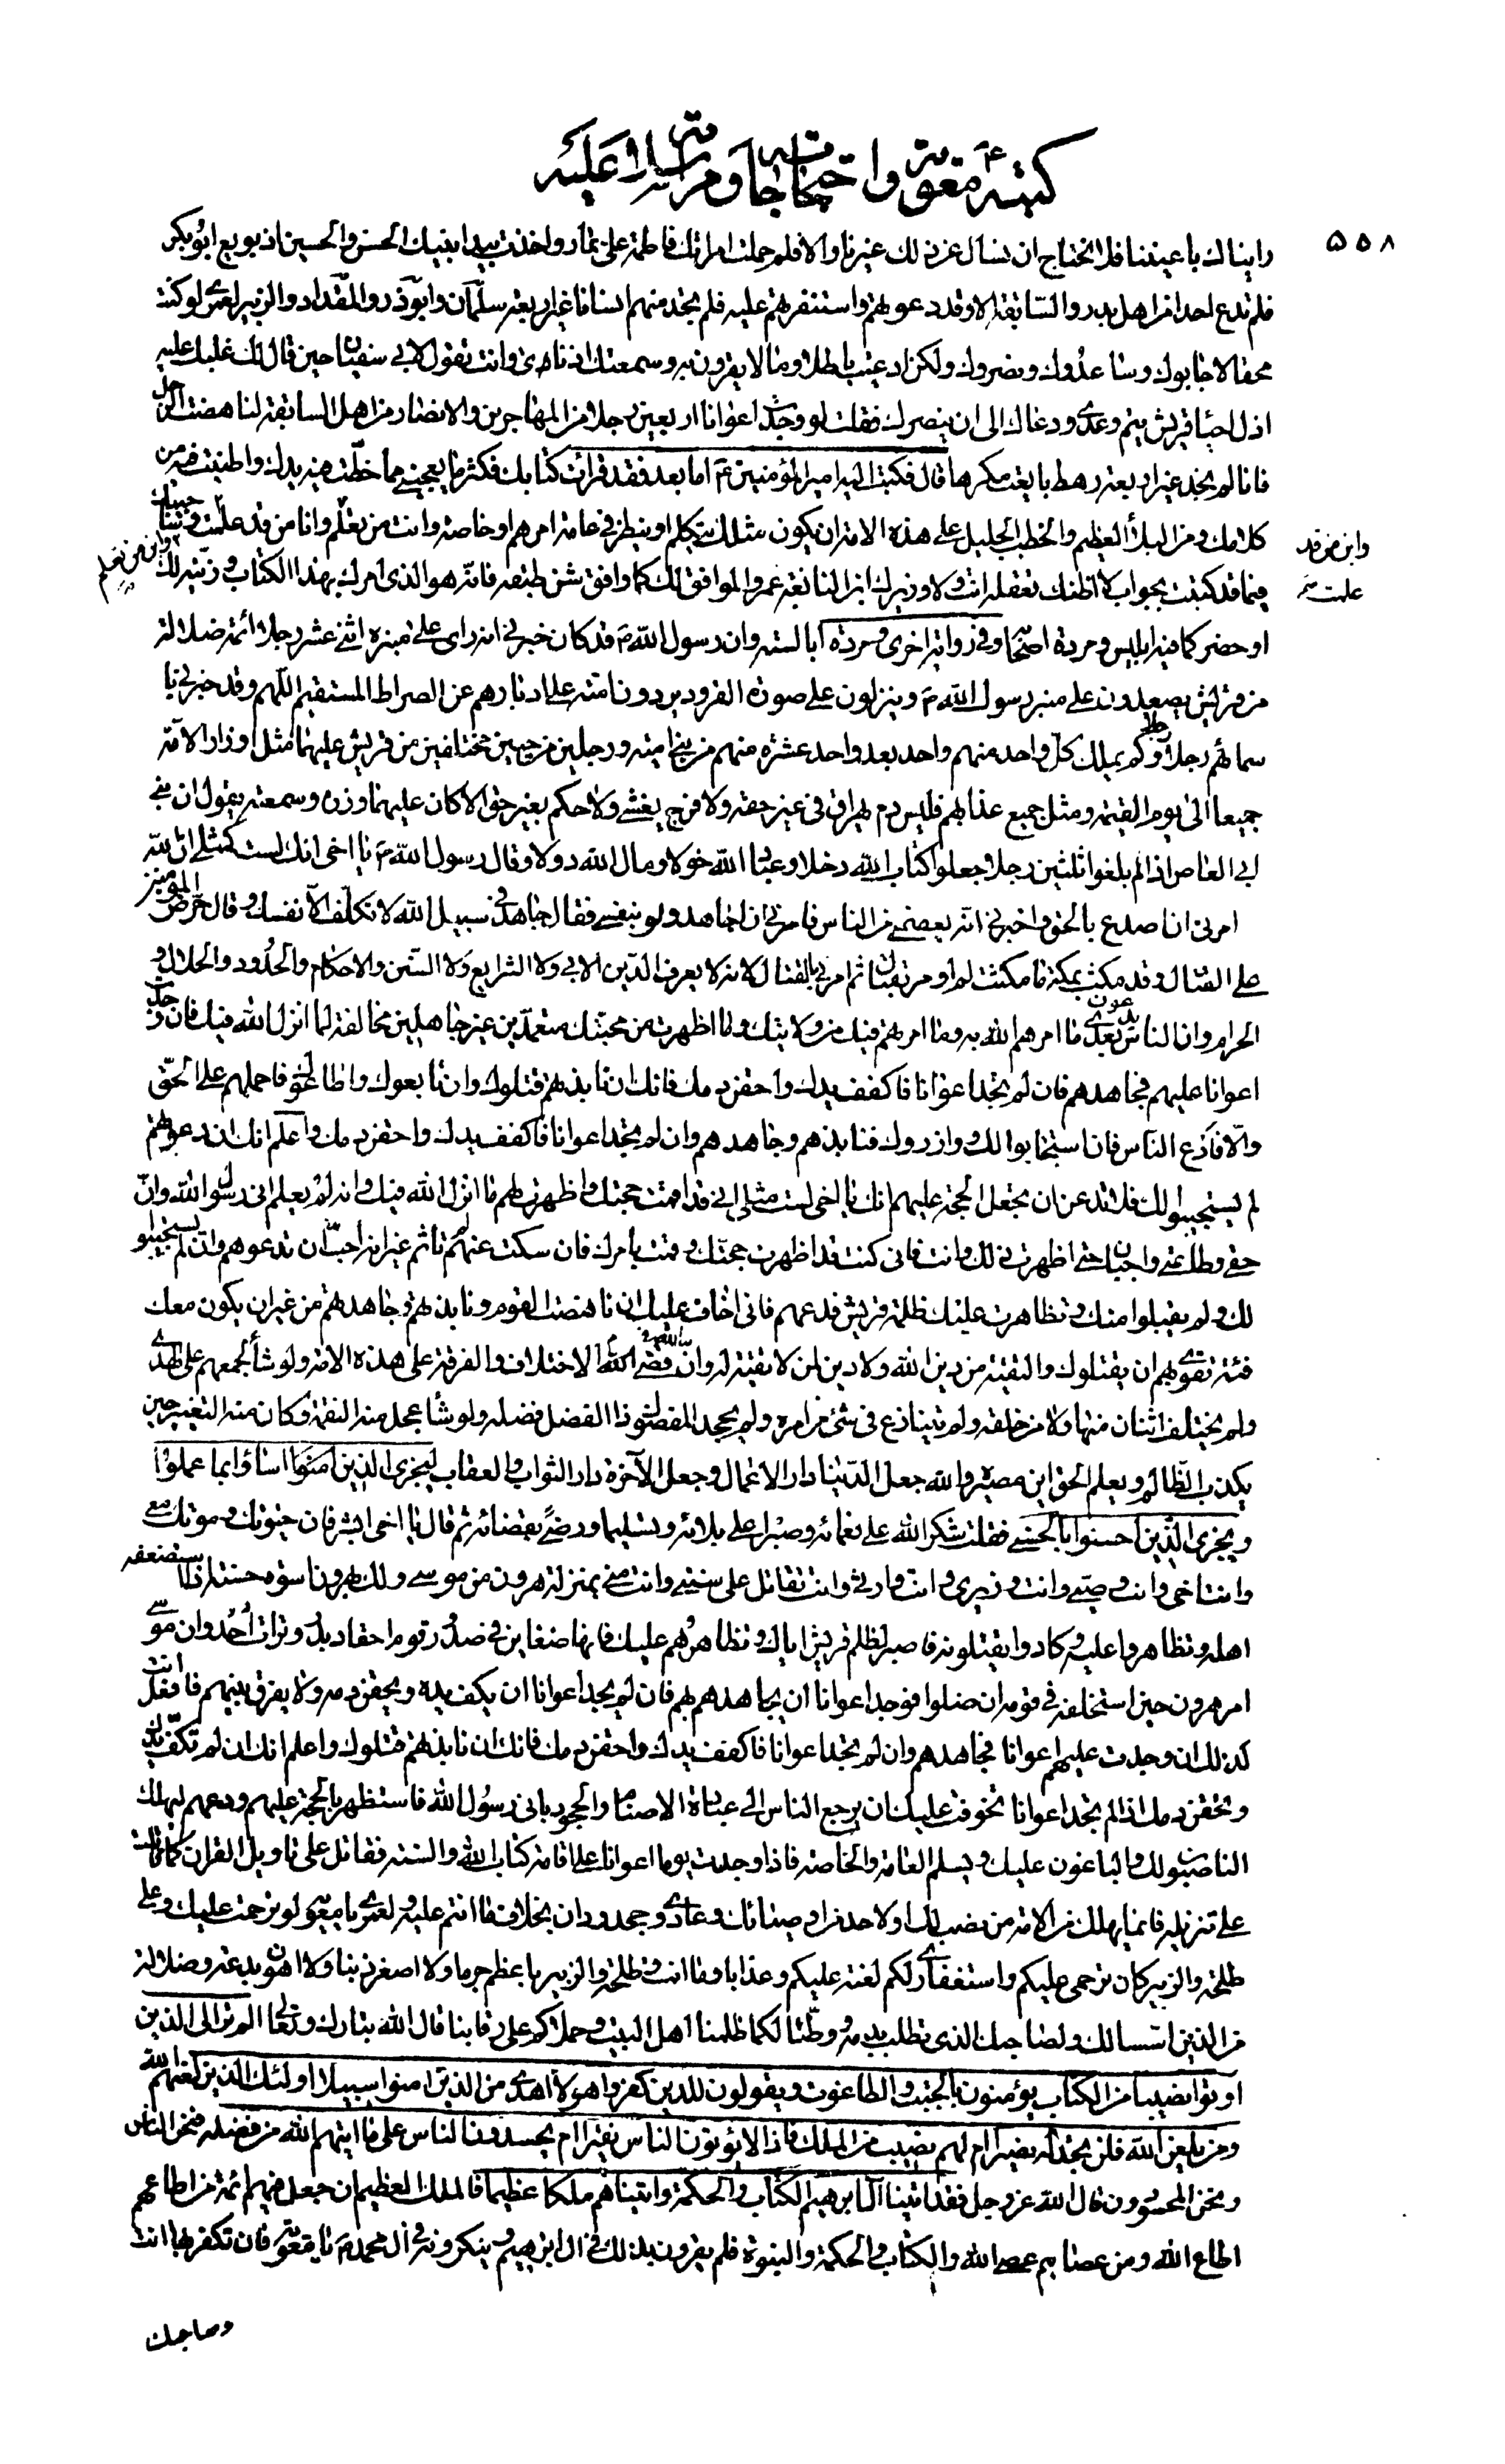 ۵۵۸
كتبه ع معوية واحتجاجاته ومراسلاته عليه
رايناك باعيننا فلا نحتاج ان نسال عن ذلك غيرنا والا فلم حملت امراتك فاطمة على حمار واخذت بيد ابنيك الحسن والحسين اذ بويع ابو بكر
فلم تدع احدا من اهل بدر والسابقة الا وقد دعوتهم واستنفرتهم عليه فلم تجد منهم انسانا غير اربعة سلمان وابو ذر والمقداد والزبير لعمرى لو كنت
محقا لاجابوك وساعدوك ونصروك ولكن ادعيت باطلا وما لا يقرون به وسمعتك اذناى وانت تقول لابى سفيان حين قال لك غلبك عليه
اذل احياء قريش تيم وعدى ودعاك الى ان ينصرك فقلت لو وجدت اعوانا اربعين رجلا من المهاجرين والانصار من اهل السابقة لناهضت الرجل
فانا لم نجد غير اربعة رهط بايعت مكرها قال فكتب اليه امير المؤمنين ع اما بعد فقد قرات كتابك فكثر ما يعجبنى مما خطت فيه يدك واطنبت فيه من
كلامك ومن البلاء العظيم والخطب الجليل على هذه الامة ان يكون مثلك يتكلم او ينظر فى عامة امرهم او خاصة وانت من تعلم وانا من قد علمت وساجيبك
وابن من قد علمت
وابن من تعلم
فيما قد كتبت بجواب لا اظنك تعقله انت ولا وزيرك ابن النابغة عمرو الموافق لك كما وافق شن طبقه فانه هو الذى امرك بهذا الكتاب وزينه لك
او حضر كما فيه ابليس ومردة اصحابه وفى رواية اخرى ومردة ابالسته وان رسول الله ص قد كان خبرنى انه راى على منبره اثنى عشر رجلا ائمة ضلالة
من قريش يصعدون على منبر رسول الله ص وينزلون على صورة القرود يردون امته على ادبارهم عن الصراط المستقيم اللهم وقد خبرنى با
سمائهم رجلا رجلا وكم يملك كل واحد منهم واحد بعد واحد عشرة منهم من بنى امية ورجلين من حيين مختلفين من قريش عليهما مثل اوزار الامة
جميعا الى يوم القيمة ومثل جميع عذابهم فليس دم يهراق فى غير حقه ولا فرج يغشى ولا حكم بغير حق الا كان عليهما وزره وسمعته يقول ان بنى
ابى العاص اذا بلغوا ثلثين رجلا جعلوا كتاب الله دخلا وعباد الله خولا ومال الله دولا وقال رسول الله ص يا اخى انك لست كمثلى ان الله
امرنى ان اصدع بالحق واخبرنى انه يعصمنى من الناس فامرنى ان اجاهد ولو بنفسى فقال جاهد فى سبيل الله لا تكلف الا نفسك وقال حرض المؤمنين
على القتال وقد مكثت بمكة ما مكثت لم اومر بقتال ثم امرنى بالقتال لانه لا يعرف الدين الا بى ولا الشرايع ولا السنن والاحكام والحدود والحلال و
الحرام وان الناس يدعون بعدى ما امرهم الله به وما امرتهم فيك من ولايتك وما اظهرت من محبتك متعمدين غير جاهلين مخالفة لما انزل الله فيك فان وجدت
اعوانا عليهم فجاهدهم فان لم تجد اعوانا فاكفف يدك واحقن دمك فانك ان نابذتهم قتلوك وان تابعوك واطاعوك فاحملهم على الحق
والا فادع الناس فان استجابوا لك ووازروك فنابذهم وجاهدهم وان لم تجد اعوانا فاكفف يدك واحقن دمك واعلم انك ان دعوتهم
لم يستجيبوا لك فلا تدعن ان تجعل الحجة عليهم انك يا اخى لست مثلى انى قد اقمت حجتك واظهرت لهم ما انزل الله فيك وانه لم يعلم انى رسول الله وان
حقى وطاعتى واجبان حتى اظهرت ذلك وانت فانى كنت قد اظهرت حجتك وقمت بامرك فان سكت عنهم لم تاثم غير انه احب ان تدعوهم وان لم يستجيبوا
لك ولم يقبلوا منك وتظاهرت عليك ظلمة قريش فدعهم فانى اخاف عليك ان ناهضت القوم ونابذتهم وجاهدتهم من غير ان يكون معك
فئة تقوى بهم ان يقتلوك والتقية من دين الله ولا دين لمن لا تقية له وان الله قضى الاختلاف والفرقة على هذه الامة ولو شاء لجمعهم على الهدى
ولم يختلف اثنان منها ولا من خلقه ولم يتنازع فى شئ من امره ولم يجحد المفضول ذا الفضل فضله ولو شاء عجل منه النقمة وكان منه التغيير حين
يكذب الظالم ويعلم الحق اين مصيره والله جعل الدنيا دار الاعمال وجعل الآخرة دار الثواب والعقاب ليجزى الذين اساؤا بما عملوا
ويجزى الذين احسنوا بالحسنى فقلت شكرا لله على نعمائه وصبرا على بلائه وتسليما ورضى بقضائه ثم قال يا اخى ابشر فان حيوتك وموتك معى
وانت اخى وانت وصيى وانت وزيرى وانت وارثى وانت تقاتل على سنتى وانت منى بمنزلة هرون من موسى ولك بهرون اسوة حسنة اذ استضعفه
اهله وتظاهروا عليه وكادوا يقتلونه فاصبر لظلم قريش اياك وتظاهرهم عليك فانها ضغاين فى صدور قوم احقاد بدر وترات احد وان موسى
امر هرون حين استخلفه فى قومه ان ضلوا فوجد اعوانا ان يجاهدهم بهم فان لم يجد اعوانا ان يكف يده ويحقن دمه ولا يفرق بينهم فافعل انت
كذلك ان وجدت عليهم اعوانا فجاهدهم وان لم تجد اعوانا فاكفف يدك واحقن دمك فانك ان نابذتهم قتلوك واعلم انك ان لم تكف يدك
وتحقن دمك اذا لم تجد اعوانا تخوفت عليك ان يرجع الناس الى عبادة الاصنام والجحود بانى رسول الله فاستظهر بالحجة عليهم ودعهم ليهلك
الناصبون لك والباغون عليك ويسلم العامة والخاصة فاذا وجدت يوما اعوانا على اقامة كتاب الله والسنة فقاتل على تاويل القران كما قاتلت
على تنزيله فانما يهلك من الامة من نصب لك او لاحد من اوصيائك وعادى وجحد ودان بخلاف ما انتم عليه ولعمرى يا معوية لو ترحمت عليك وعلى
طلحة والزبير كان ترحمى عليكم واستغفارى لكم لعنة عليكم وعذابا وما انت وطلحة والزبير باعظم جرما ولا اصغر ذنبا ولا اهون بدعة وضلالة
من الذين اسسا لك ولصاحبك الذى تطلب بدمه ووطئا لكما ظلمنا اهل البيت وحملاكم على رقابنا قال الله تبارك وتعالى الم تر الى الذين
اوتوا نصيبا من الكتاب يؤمنون بالجبت والطاغوت ويقولون للذين كفروا هولاء اهدى من الذين امنوا سبيلا اولئك الذين لعنهم الله
ومن يلعن الله فلن تجد له نصيرا ام لهم نصيب من الملك فاذا لا يؤتون الناس نقيرا ام يحسدون الناس على ما اتيهم الله من فضله فنحن الناس
ونحن المحسودون قال الله عز وجل فقد اتينا آل ابرهيم الكتاب والحكمة واتيناهم ملكا عظيما فالملك العظيم ان جعل فيهم ائمة من اطاعهم
اطاع الله ومن عصاهم عصى الله والكتاب والحكمة والنبوة فلم يقرون بذلك فى ال ابرهيم وينكرونه فى ال محمد ص يا معوية فان تكفر بها انت
وصاحبك